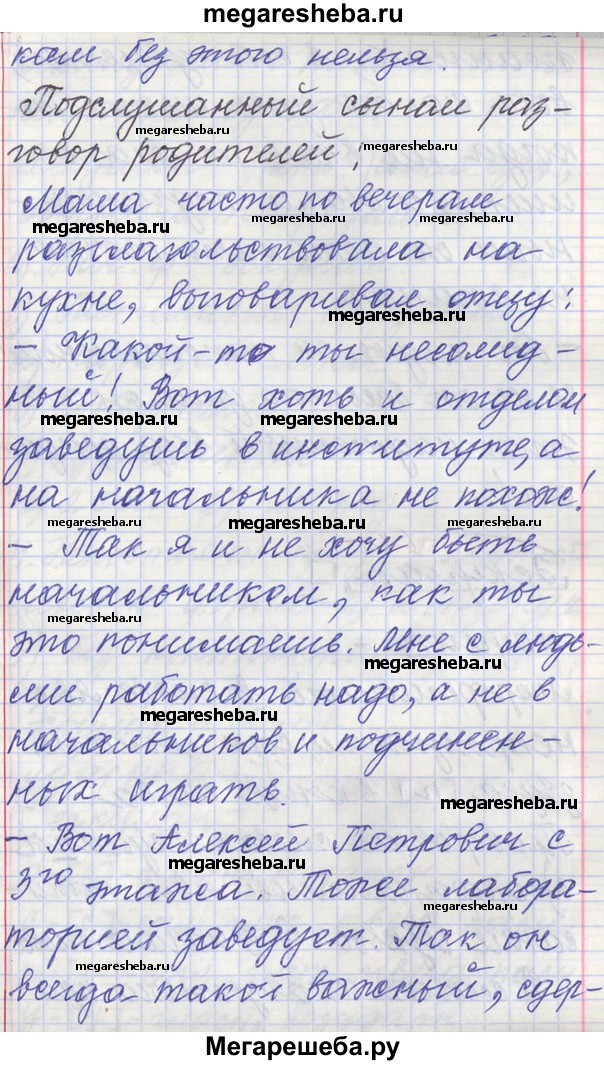 megaresheba.ru
кам без этого нельзя.
Подслушанный сыном раз-
megaresheba.ru
megaresheba.ru
говор родителей:
Мама часто по вечерам
megaresheba.ru
megaresheba.ru
разглагольствовала на
кухне, выговаривая отцу:
megaresheba.ru
- Какой-то ты несолид-
ный! Вот хоть и отделом
megaresheba.ru
megaresheba.ru
заведуешь в институте, а
на начальника не похож!
megaresheba.ru
megaresheba.ru
megaresheba.ru
- Так я и не хочу быть
начальником, как ты
это понимаешь. Мне с людь-
megaresheba.ru
ми работать надо, а не в
megaresheba.ru
начальников и подчинен-
ных играть.
megaresheba.ru
- Вот Алексей Петрович с
megaresheba.ru
3го этажа. Тоже лабора-
megaresheba.ru
торией заведует. Так он
megaresheba.ru
megaresheba.ru
всегда такой важный, сдер-
Мегарешеба.ру